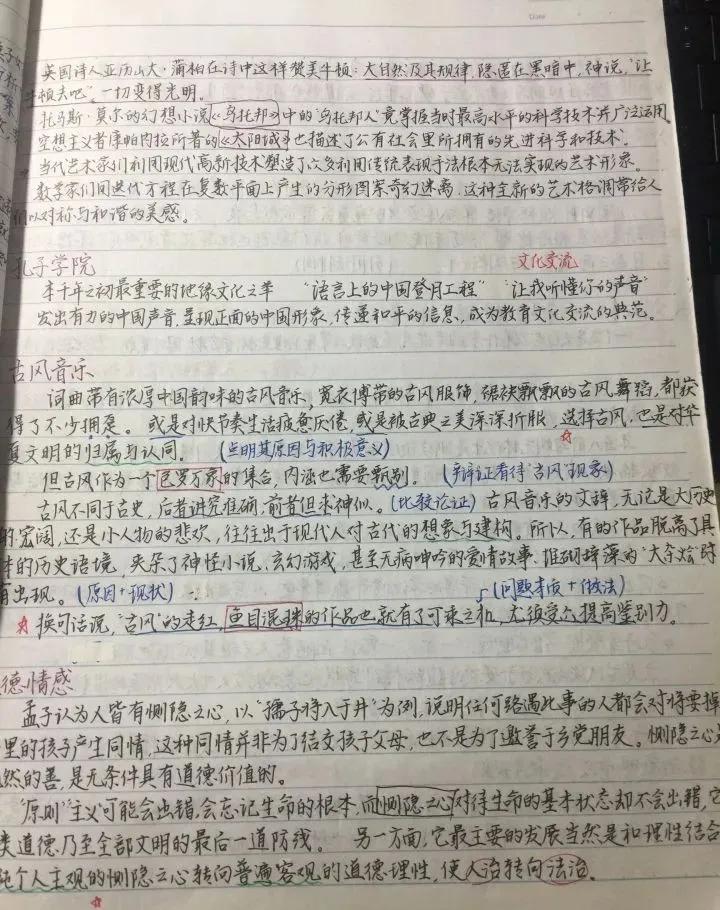 Date
英国诗人亚历山大·蒲柏在诗中这样赞美牛顿：大自然及其规律,隐匿在黑暗中,神说,"让
牛顿去吧",一切变得光明。
托马斯·莫尔的幻想小说《乌托邦》中的'乌托邦人'竟掌握当时最高水平的科学技术并广泛运用
空想主义者康帕内拉所著的《太阳城》也描述了公有社会里所拥有的先进科学和技术。
当代艺术家们利用现代高新技术塑造了众多利用传统表现手法根本无法实现的艺术形象。
数学家们用迭代方程在复数平面上产生的分形图案奇幻迷离,这种全新的艺术格调带给人
们以对称与和谐的美感。
孔子学院 文化交流
本千年之初最重要的地缘文化之举 "语言上的中国登月工程" "让我听懂你的声音"
发出有力的中国声音,呈现正面的中国形象,传递和平的信息,成为教育文化交流的典范。
古风音乐
词曲带有浓厚中国韵味的古风音乐,宽衣博带的古风服饰,裙袂飘飘的古风舞蹈,都获
得了不少拥趸。或是对快节奏生活疲惫厌倦,或是被古典之美深深折服,选择古风,也是对华
夏文明的归属与认同。(点明其原因与积极意义)
但古风作为一个包罗万象的集合,内涵也需要甄别。(辩证看待'古风'现象)
古风不同于古史,后者讲究准确,前者但求神似。(比较论证)古风音乐的文辞,无论是大历史
的宏阔,还是小人物的悲欢,往往出于现代人对古代的想象与建构。所以,有的作品脱离了具
体的历史语境,夹杂了神怪小说,玄幻游戏,甚至无病呻吟的爱情故事,堆砌辞藻的'大杂烩'时
有出现。(原因+现状) (问题本质+做法)
换句话说,"古风"的走红,鱼目混珠的作品也就有了可乘之机,尤须受众提高鉴别力。
德情感
孟子认为人皆有恻隐之心,以"孺子将入于井"为例,说明任何路遇此事的人都会对将要掉
里的孩子产生同情,这种同情并非为了结交孩子父母,也不是为了邀誉于乡党朋友。恻隐之心是
然的善,是无条件具有道德价值的。
"原则"主义可能会出错,会忘记生命的根本,而恻隐之心对待生命的基本状态却不会出错,它
类道德乃至全部文明的最后一道防线。 另一方面,它最主要的发展当然是和理性结合
纯个人主观的恻隐之心转向普遍客观的道德理性,使人治转向法治。